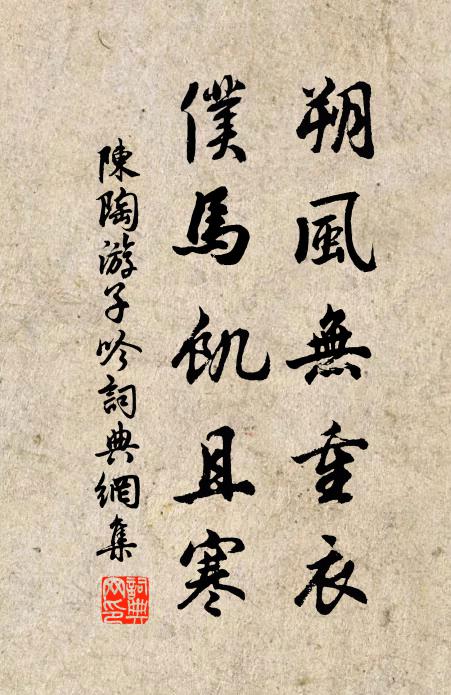 朔風無重衣
僕馬飢且寒
陳陶游子吟詞典網集
詞典
网印